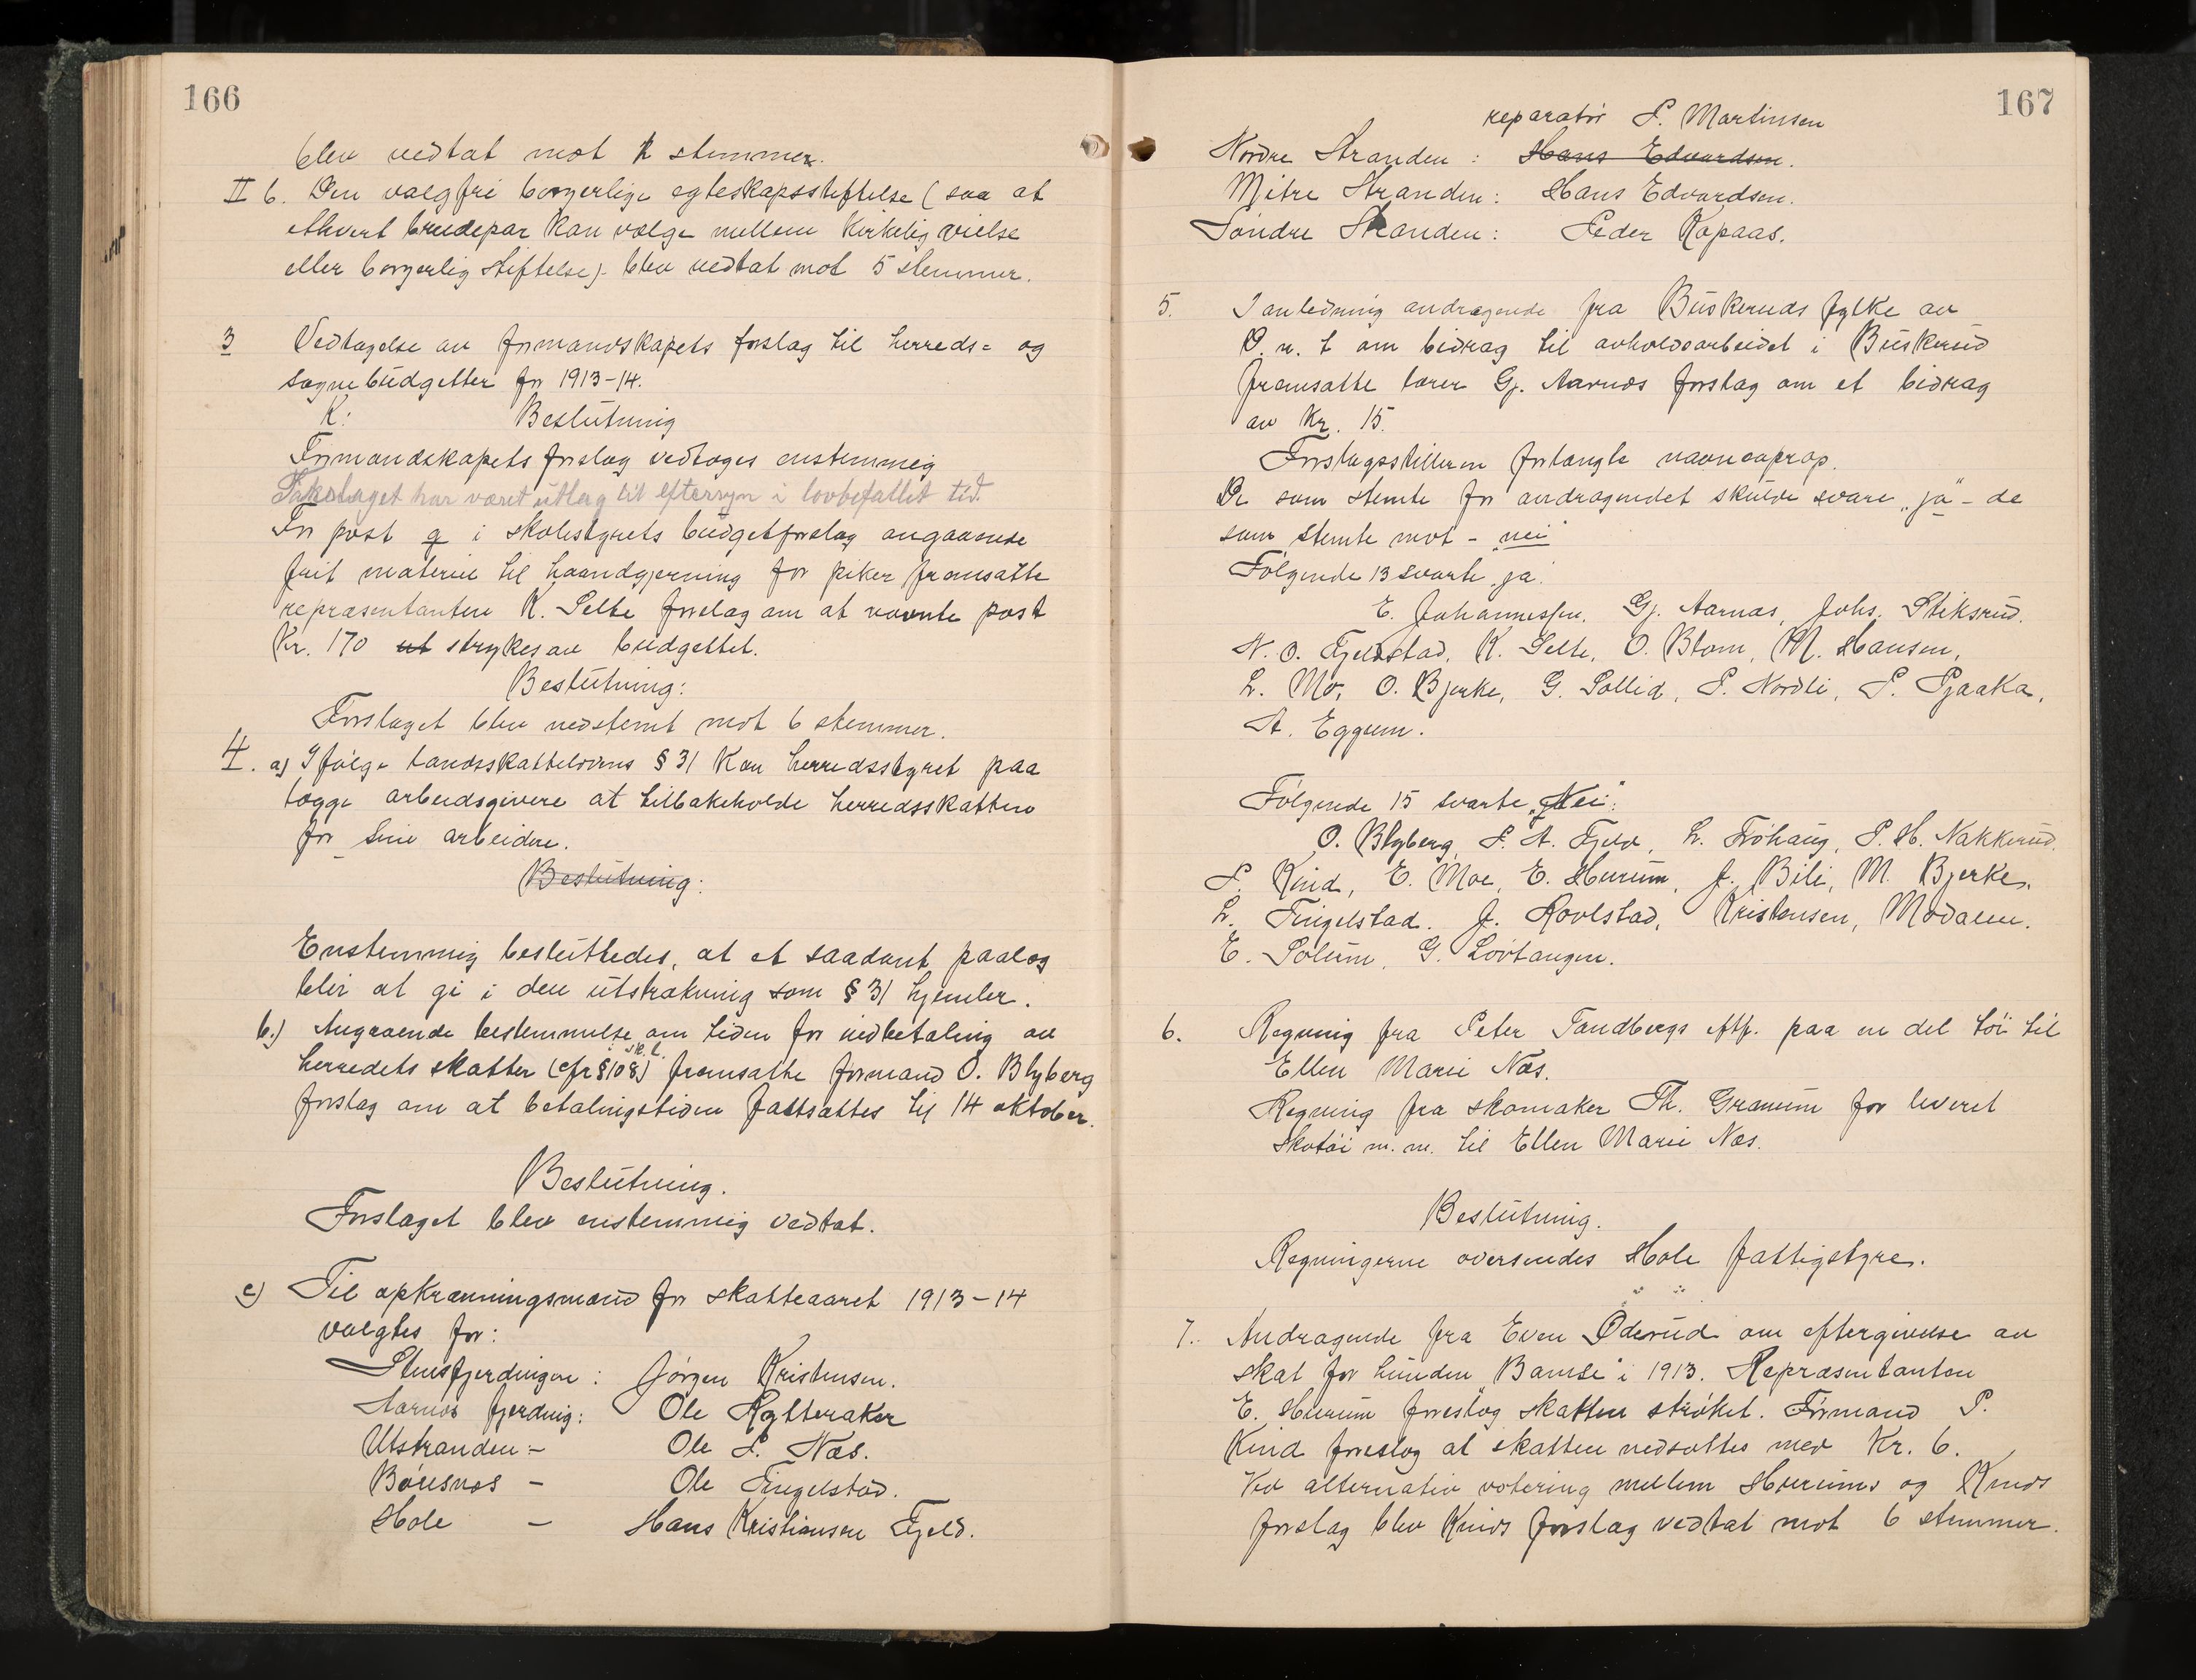 166
blev vedtat mot 12 stemmer.
II b. Den valgfri borgerlige egteskapsstiftelse (saa at
ethvert brudepar kan vælge mellem kirkelig vielse
eller borgerlig stiftelse) - blev vedtat mot 5 stemmer.
3 Vedtagelse av formandskapets forslag til herreds= og
sognebudgetter for 1913-14.
K: Beslutning
Formandskapets forslag vedtoges enstemmig
har været utlag til eftersyn i lovbefallet tid.
For post g i skolestyrets budgetforslag angaaende
frit materiel til haandgjerning for piker fremsatte
repræsentanten K. Selte forslag om at nævnte post
Kr. 170 ut strykes av budgettet.
Beslutning:
Forslaget blev nedstemt mot 6 stemmer.
4. a) Ifølge landsskattelovens § 31 kan herredsstyret paa
lægge arbeidsgivere at tilbakeholde herredsskatten
for sine arbeidere.
Beslutning:
Enstemmig besluttedes, at et saadant paalæg
blir at gi i den utstrækning som § 31 hjemler.
b.) Angaaende bestemmelse om tiden for indbetaling av
herredets skatter (cfr § 108) sk. l. fremsatte formand O. Blyberg
forslag om at betalingstiden fastsættes til 14 oktober.
Beslutning.
Forslaget blev enstemmig vedtat.
c) Til opkrævningsmænd for skatteaaret 1913-14
valgtes for:
Stensfjerdingen: Jørgen Kristensen.
Aarnes fjerding: Ole Rytteraker
Utstranden: - Ole P. Næs.
Bønsnes - Ole Fingelstad.
Hole - Hans Kristiansen Fjeld.
167
reparatør P. Martinsen
Nordre Stranden: Hans Edvardsen.
Mitre Stranden: Hans Edvardsen.
Søndre Stranden: Peder Kopaas.
5. I anledning andragende fra Buskeruds fylke av
D. n. t om bidrag til avholdsarbeidet i Buskerud
fremsatte lærer Gj. Aarnes forslag om et bidrag
av Kr. 15.
Forslagsstilleren forlangte navneoprop.
De som stemte for andragendet skulde svare "ja" - de
som stemte mot - "nei"
Følgende 13 svarte "ja".
E. Johannessen, Gj. Aarnæs, Johs. Stiksrud.
N. O. Fjeldstad, K. Selte, O. Blom, M. Hansen,
L. Mo, O. Bjerke, G. Sollid, P. Nordli, P. Pjaaka,
A. Eggum.
Følgende 15 svarte "Nei":
O. Blyberg, P. A. Fjeld, L. Frøhaug, P. H. Nakkerud.
P. Kind, E. Moe, E. Hurum, J. Bili, M. Bjerke,
L. Fingelstad. J. Rolstad, Kristensen, Modalen.
E. Solum, G. Løvtangen.
6. Regning fra Peter Tandbergs eftf. paa en del tøi til
Ellen Marie Næs.
Regning fra skomaker Th. Granum for leveret
skotøi m. m. til Ellen Marie Næs.
Beslutning.
Regningerne oversendes Hole fattigstyre.
7. Andragende fra Even Øderud om eftergivelse av
skat for hunden "Bamse" i 1913. Repræsentanten
E. Hurum foreslog skatten strøket. Formand P.
Kind foreslog at skatten nedsattes med Kr. 6.
Ved alternativ votering mellem Hurums og Kinds
forslag blev Kinds forslag vedtat mot 6 stemmer.